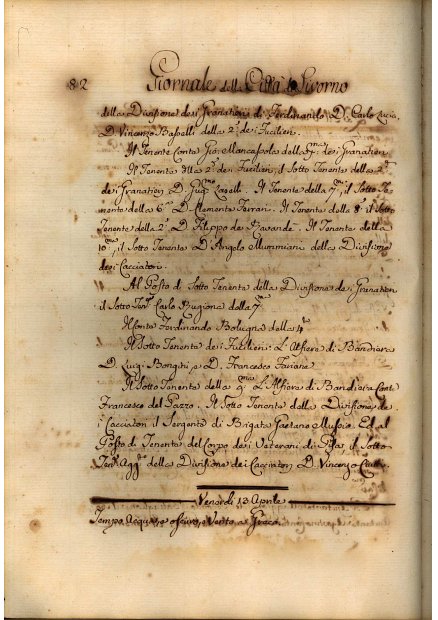 82 Giornale della Città di Livorno
della Divisione dei Granatieri di Ferdinando D. Carlo
D. Vincenzo Baselli della 2.ª dei Fucilieri.
Il Tenente Conte Gio: della 7.ma dei Granatieri
Il Tenente della 2.ª dei Fucilieri, il Sotto Tenente della 2.ª
dei Granatieri D. Caselli. Il Tenente della 7.ma il Sotto Te-
nente della 6.ta D. Clemente Ferrari. Il Tenente della 8.ª il Sotto
Tenente della 2.ª D. Filippo de Il Tenente della
10.ma, il Sotto Tenente D. Angelo della Divisione
dei Cacciatori.
Al Posto di Sotto Tenente della Divisione dei Granatieri
il Sotto Ten.te Carlo Bugione della 7.ma
Il Conte Ferdinando Bologna della 4.ta
Il Sotto Tenente dei Fucilieri: L'Alfiere di Bandiera
D. Luigi Bonghi, e D. Francesco
Il Sotto Tenente della L'Alfiere di Bandiera Conte
Francesco del Pozzo. Il Sotto Tenente della Divisione de
Cacciatori il Sergente di Brigata Gaetano Ed al
Posto di Tenente del Corpo dei Veterani di Pisa, il Sotto
Ten.te Agg.to della Divisione dei Cacciatori D. Vincenzo
Venerdì 13 Aprile
Tempo Acqua, e oscuro, e Vento a Greco.